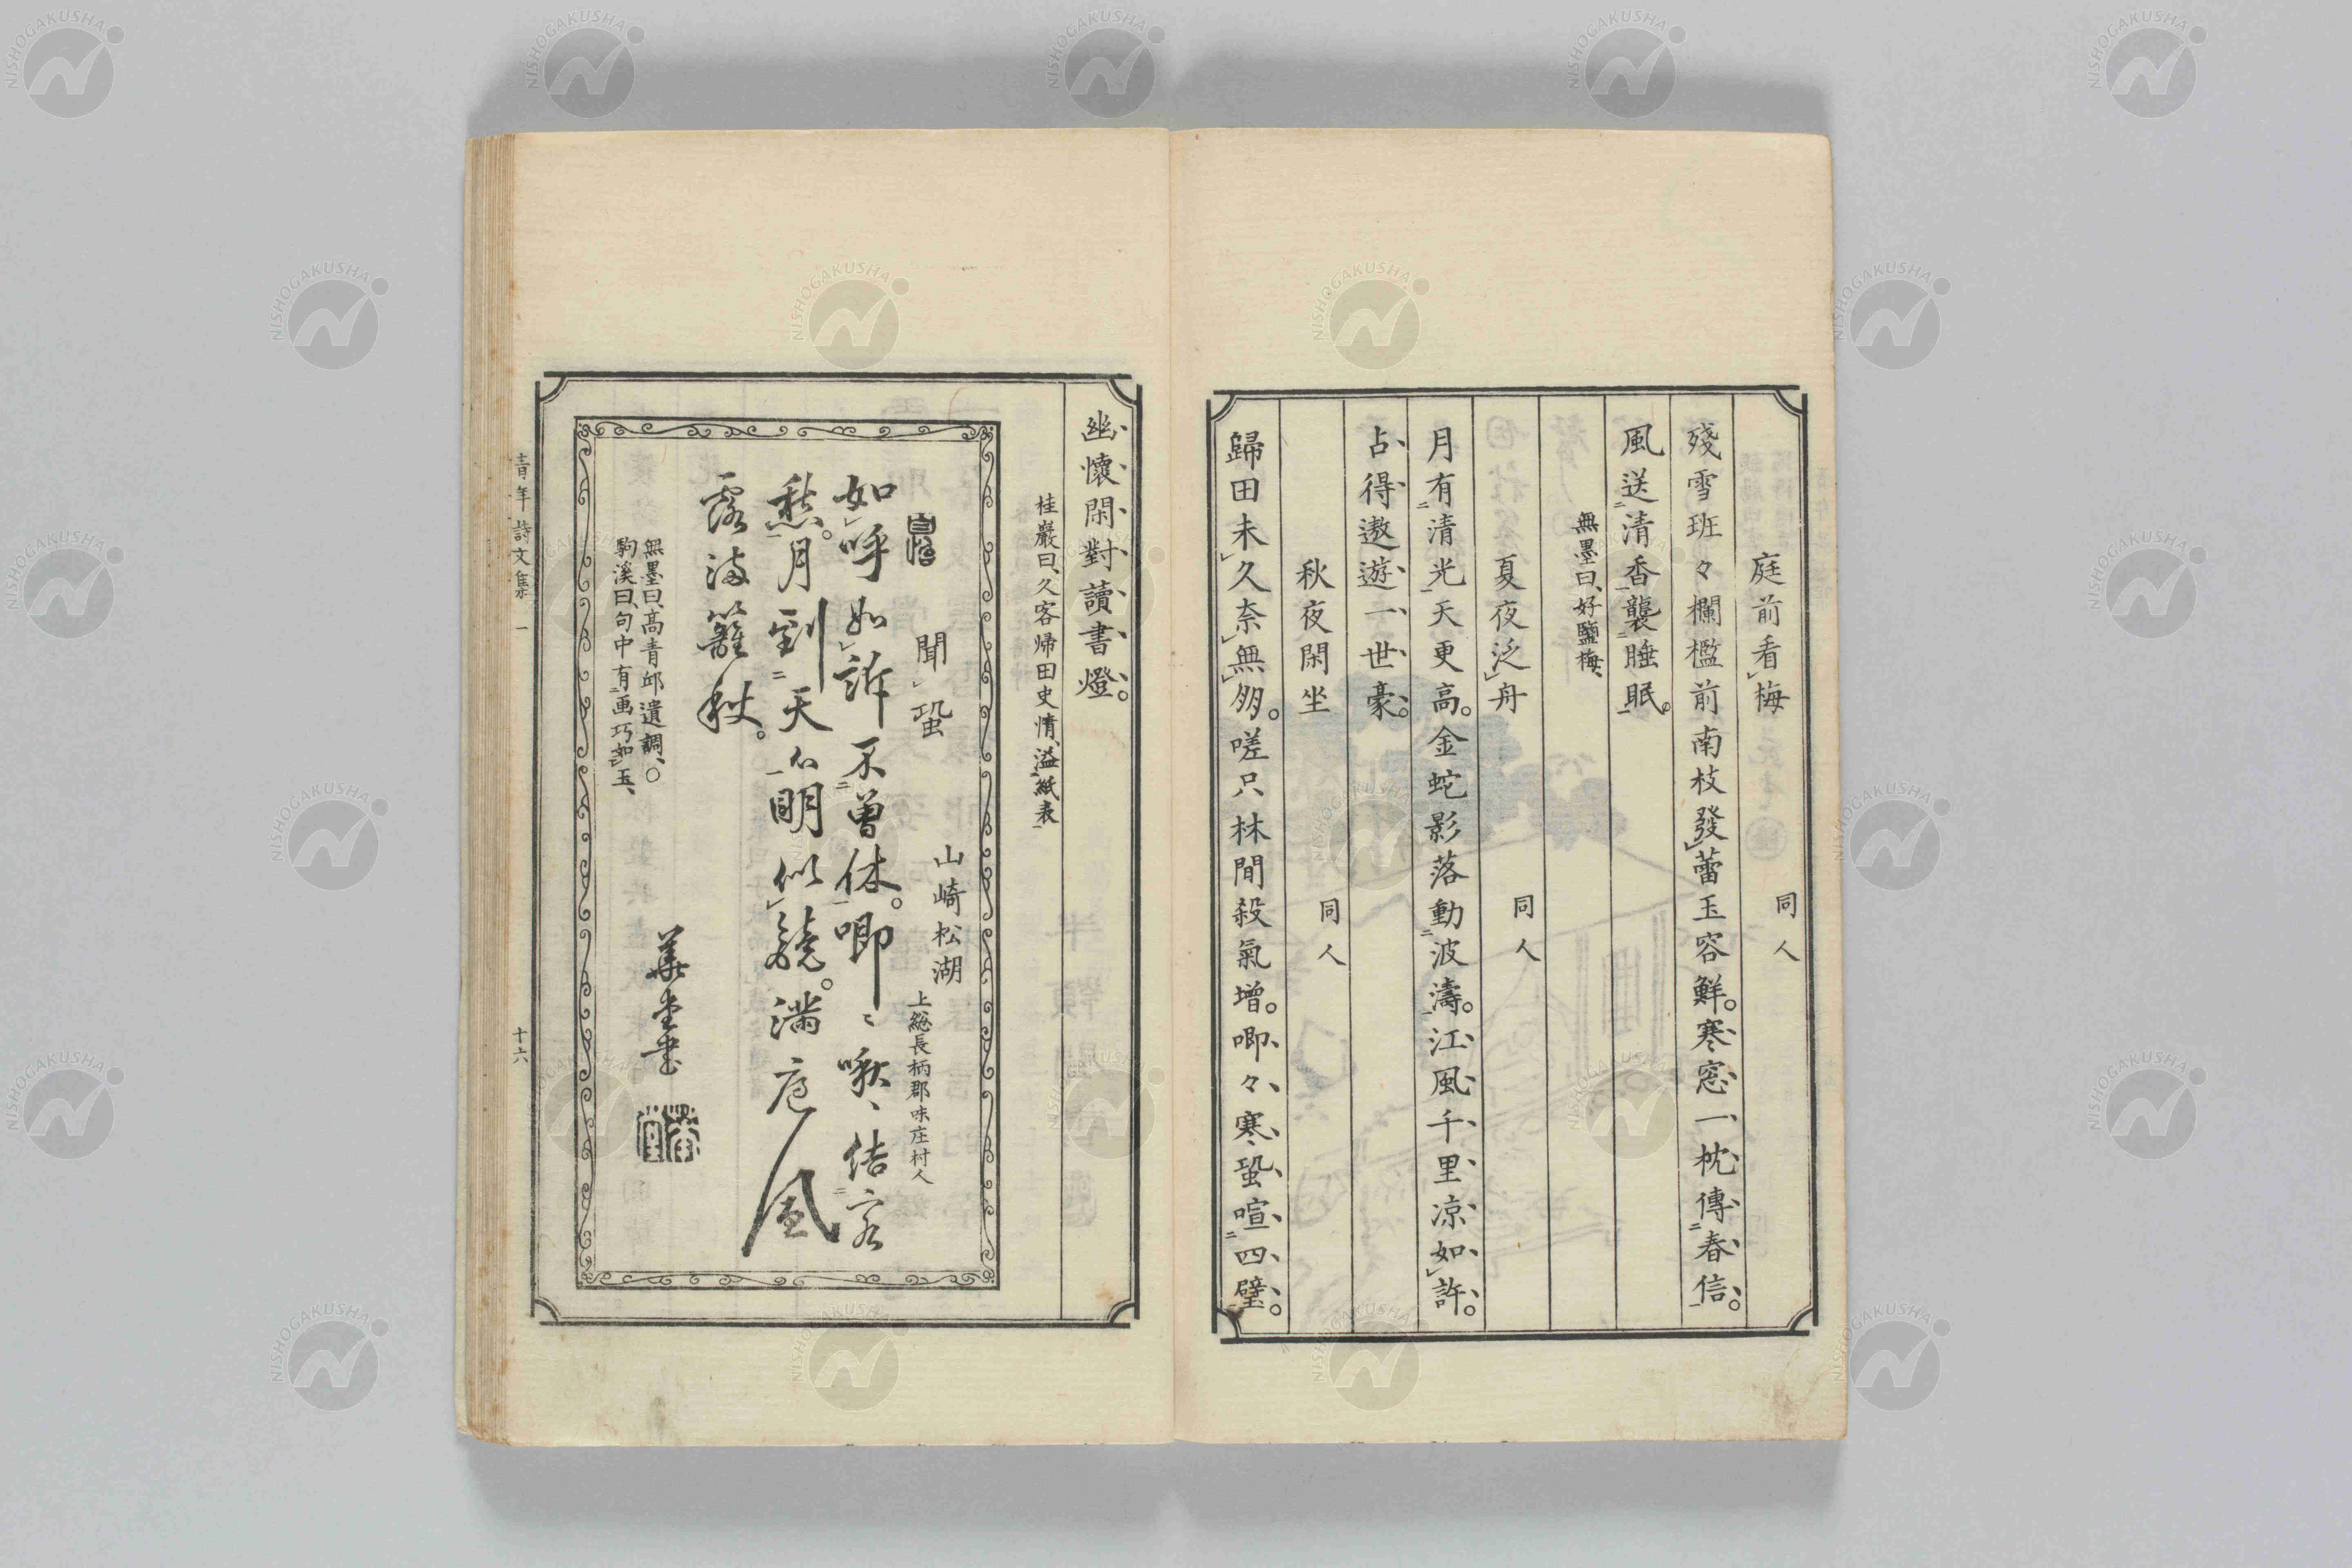 庭前看梅　同人
殘雪班々欄檻前南枝發蕾玉容鮮。寒窓一枕傳春信。
風送清香襲睡眠。
無墨曰、好鹽梅、
夏夜泛舟　同人
月有清光天更高。金蛇影落動波濤。江風千里凉如許。
占得遨遊一世豪。
秋夜閑坐　同人
歸田未久奈無多。嗟只林間殺氣增。喞々寒蛩喧四壁。
幽懷閑對讀書燈。
桂巖曰、久客帰田史情、溢紙表
聞蛩
山崎松湖　上総長柄郡味庄村人
如呼如訴不曽休。喞〻啾〻結客
愁。月到天心明似鏡。満庭風
露満籬秋。
無墨曰、高青邱遺調、○
駒溪曰、句中有画巧如玉、
華堂書
青年詩文集　一　十六
NISHOGAKUSHA